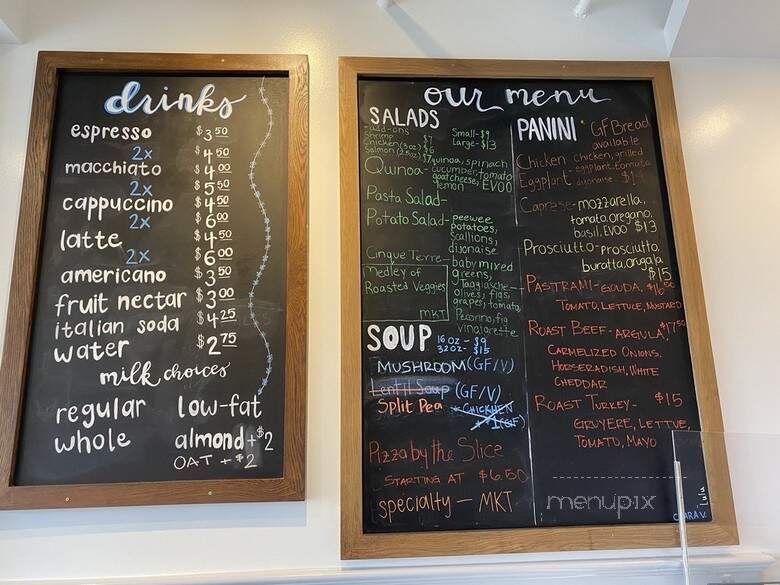 drinks
espresso $3.50
2x $4.50
macchiato $4.00
2x $5.50
cappuccino $4.50
2x $6.00
latte $4.50
2x $6.00
americano $3.50
fruit nectar $3.00
italian soda $4.25
water $2.75
milk choices
regular low-fat
whole almond+$2
OAT + $2
our menu
SALADS
add-ons Small-$9
shrimp $7 Large-$13
chicken (3oz) $6
Salmon (2.5oz) $7
Quinoa- quinoa, spinach
cucumber, tomato
goat cheese, EVOO
lemon
Pasta Salad-
Potato Salad- peewee
potatoes,
scallions,
dijonaise
Cinque Terre- baby mixed
greens,
Taggiasche
olives, figs,
grape tomato,
Pecorino, fig
vinaigrette
Medley of
Roasted Veggies
MKT
SOUP 16oz - $9
32oz - $15
MUSHROOM (GF/V)
Lentil Soup (GF/V)
Split Pea
CHICKHEN
(GF)
Pizza by the Slice
STARTING AT $6.50
specialty - MKT
PANINI * GF Bread
available
Chicken Chicken, grilled
Eggplant- eggplant, tomato
dijonaise
Caprese- mozzarella,
tomato, oregano,
basil, EVOO $13
Prosciutto- prosciutto,
buratta, arugala
$15
PASTRAMI- GOUDA, $16.50
TOMATO, LETTUCE, MUSTARD
ROAST BEEF- ARGULA, $17.50
CARMELIZED ONIONS,
HORSERADISH, WHITE
CHEDDAR
ROAST TURKEY- $15
GRUYERE, LETTUE,
TOMATO, MAYO
menupix